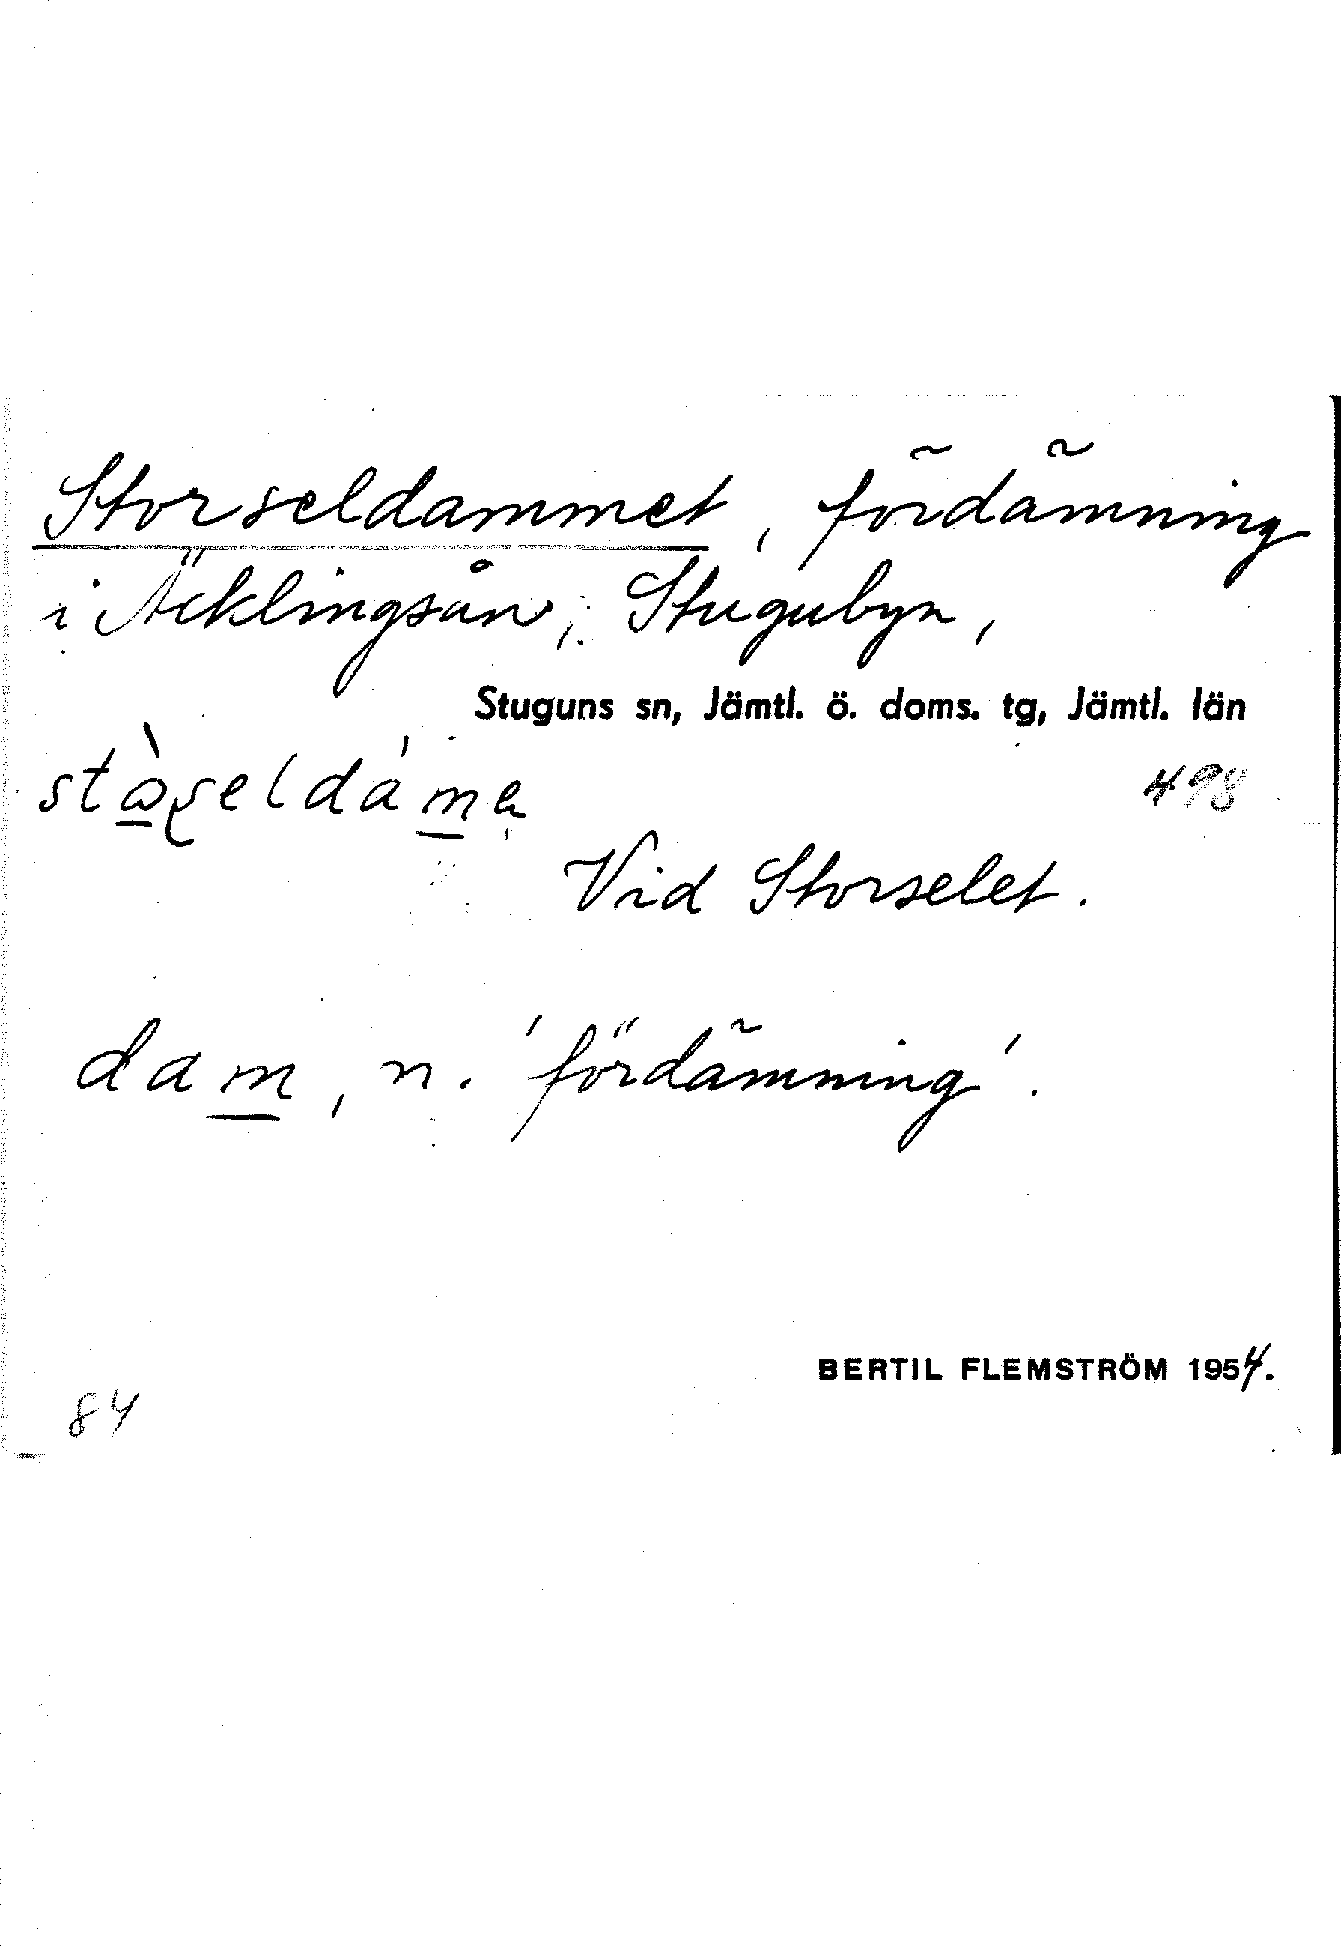 Storseldammet, fördämning
i Äcklingsån, Stugubyn,
Stuguns sn, Jämtl. ö. doms. tg, Jämtl. län
498
Vid Storselet.
dam, n. 'fördämning'.
BERTIL FLEMSTRÖM 1954.
84